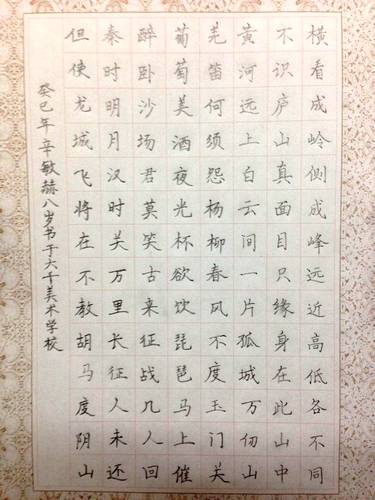 横看成岭侧成峰远近高低各不同
不识庐山真面目只缘身在此山中
黄河远上白云间一片孤城万仞山
羌笛何须怨杨柳春风不度玉门关
葡萄美酒夜光杯欲饮琵琶马上催
醉卧沙场君莫笑古来征战几人回
秦时明月汉时关万里长征人未还
但使龙城飞将在不教胡马度阴山
癸巳年辛敏赫八岁书于大千美术学校